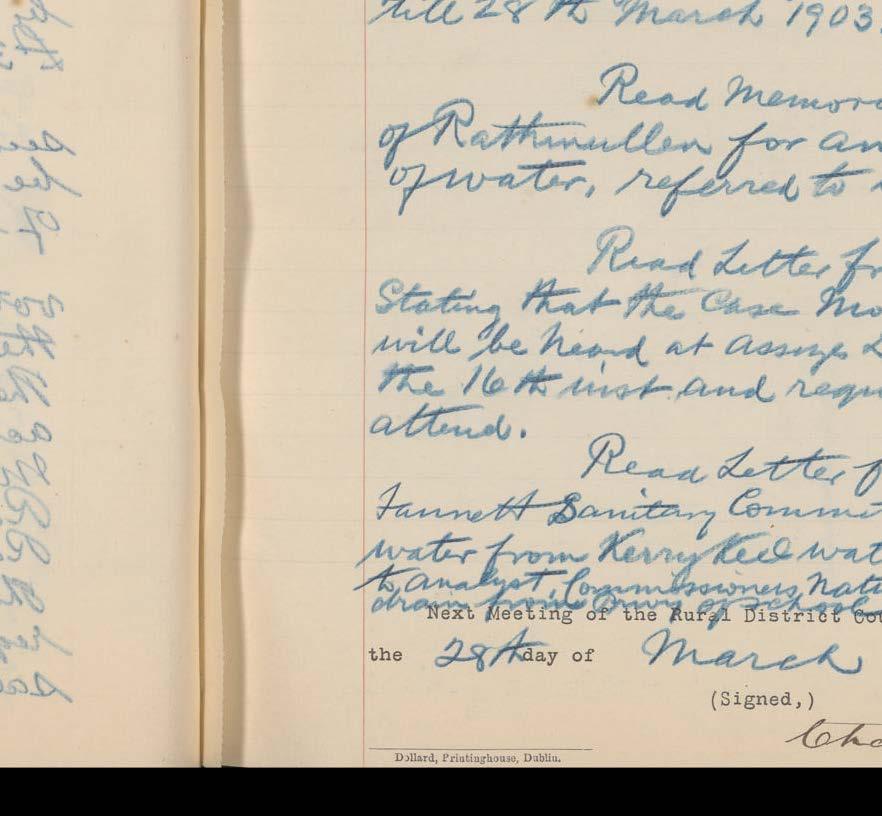 till 28th March 1903.
Read Memori
of Rathmullen for an
of water, referred to
Read Letter fr
Stating that the Case Mo
will be heard at Assizes
the 16th inst. and requ
attend.
Read Letter f
Fannett Sanitary Commi
water from KerryKeel wat
to analyst, Commissioners Nati
drain from
Next Meeting of the Rural District Cou
the 28th day of March
(Signed,)
Cha
Dollard, Printinghouse, Dublin.